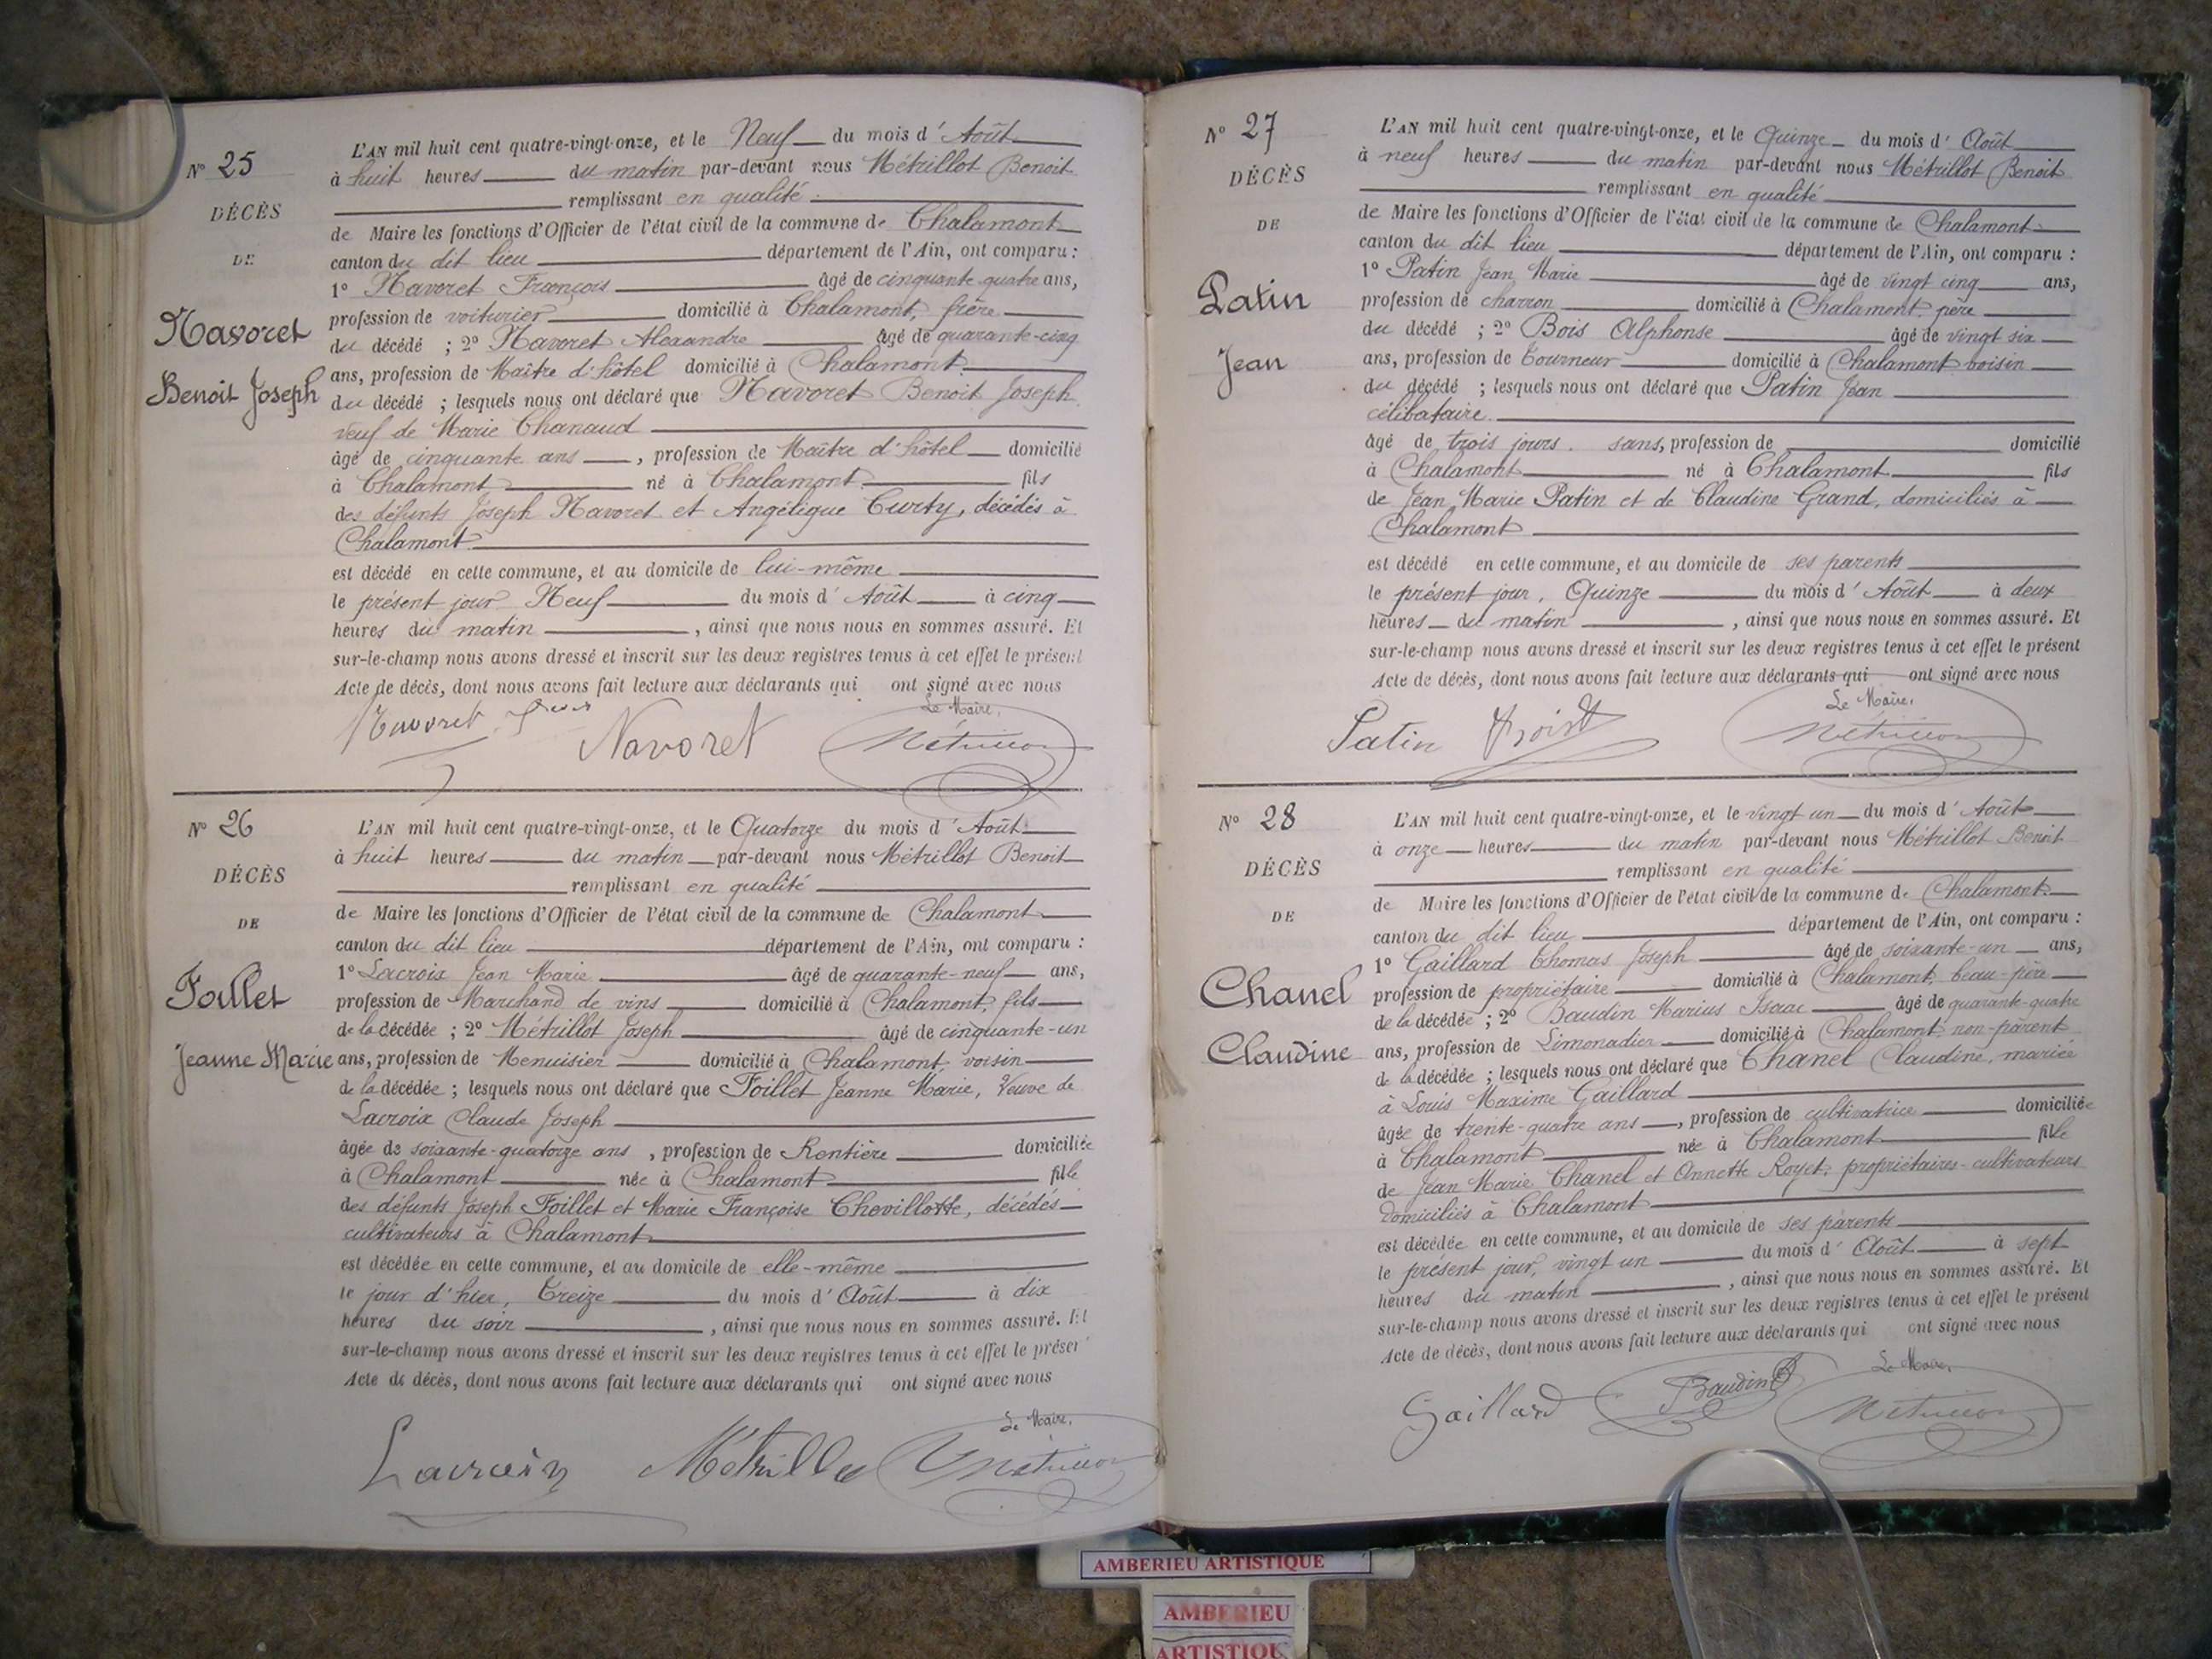 N° 25
DÉCÈS
DE
Navoret
Benoit Joseph
L'AN mil huit cent quatre-vingt-onze, et le Neuf du mois d' Août
à huit heures du matin par-devant nous Métrillot Benoit
remplissant en qualité
de Maire les fonctions d'Officier de l'état civil de la commune de Chalamont
canton du dit lieu département de l'Ain, ont comparu :
1° Navoret François âgé de cinquante quatre ans,
profession de voiturier domicilié à Chalamont, frère
du décédé ; 2° Navoret Alexandre âgé de quarante-cinq
ans, profession de Maître d'hôtel domicilié à Chalamont
du décédé ; lesquels nous ont déclaré que Navoret Benoit Joseph
veuf de Marie Chanaud
âgé de cinquante ans , profession de Maître d'hôtel domicilié
à Chalamont né à Chalamont fils
des défunts Joseph Navoret et Angélique Curty, décédés à
Chalamont
est décédé en cette commune, et au domicile de lui-même
le présent jour Neuf du mois d' Août à cinq
heures du matin , ainsi que nous nous en sommes assuré. Et
sur-le-champ nous avons dressé et inscrit sur les deux registres tenus à cet effet le présent
Acte de décès, dont nous avons fait lecture aux déclarants qui ont signé avec nous
Le Maire,
Navoret Navoret Métrillot
N° 26
DÉCÈS
DE
Foillet
Jeanne Marie
L'AN mil huit cent quatre-vingt-onze, et le Quatorze du mois d' Août
à huit heures du matin par-devant nous Métrillot Benoit
remplissant en qualité
de Maire les fonctions d'Officier de l'état civil de la commune de Chalamont
canton du dit lieu département de l'Ain, ont comparu :
1° Lacroix Jean Marie âgé de quarante-neuf ans,
profession de Marchand de vins domicilié à Chalamont, fils
de la décédée ; 2° Métrillot Joseph âgé de cinquante-un
ans, profession de Menuisier domicilié à Chalamont, voisin
de la décédée ; lesquels nous ont déclaré que Foillet Jeanne Marie, Veuve de
Lacroix Claude Joseph
âgée de soixante-quatorze ans , profession de Rentière domiciliée
à Chalamont née à Chalamont fille
des défunts Joseph Foillet et Marie Françoise Chevillotte, décédés
cultivateurs à Chalamont
est décédée en cette commune, et au domicile de elle-même
le jour d'hier, Treize du mois d' Août à dix
heures du soir , ainsi que nous nous en sommes assuré. Et
sur-le-champ nous avons dressé et inscrit sur les deux registres tenus à cet effet le présent
Acte de décès, dont nous avons fait lecture aux déclarants qui ont signé avec nous
Le Maire,
Lacroix Métrillot Métrillot
N° 27
DÉCÈS
DE
Patin
Jean
L'AN mil huit cent quatre-vingt-onze, et le Quinze du mois d' Août
à neuf heures du matin par-devant nous Métrillot Benoit
remplissant en qualité
de Maire les fonctions d'Officier de l'état civil de la commune de Chalamont
canton du dit lieu département de l'Ain, ont comparu :
1° Patin Jean Marie âgé de vingt cinq ans,
profession de charron domicilié à Chalamont, père
du décédé ; 2° Bois Alphonse âgé de vingt six
ans, profession de Tourneur domicilié à Chalamont voisin
du décédé ; lesquels nous ont déclaré que Patin Jean
célibataire
âgé de trois jours. sans, profession de domicilié
à Chalamont né à Chalamont fils
de Jean Marie Patin et de Claudine Grand, domiciliés à
Chalamont
est décédé en cette commune, et au domicile de ses parents
le présent jour, Quinze du mois d' Août à deux
heures du matin , ainsi que nous nous en sommes assuré. Et
sur-le-champ nous avons dressé et inscrit sur les deux registres tenus à cet effet le présent
Acte de décès, dont nous avons fait lecture aux déclarants qui ont signé avec nous
Le Maire,
Patin Métrillot
N° 28
DÉCÈS
DE
Chanel
Claudine
L'AN mil huit cent quatre-vingt-onze, et le vingt un du mois d' Août
à onze heures du matin par-devant nous Métrillot Benoit
remplissant en qualité
de Maire les fonctions d'Officier de l'état civil de la commune de Chalamont
canton du dit lieu département de l'Ain, ont comparu :
1° Gaillard Thomas Joseph âgé de soixante-un ans,
profession de propriétaire domicilié à Chalamont, beau-père
de la décédée ; 2° Baudin Marius Isaac âgé de quarante-quatre
ans, profession de Limonadier domicilié à Chalamont non-parent
de la décédée ; lesquels nous ont déclaré que Chanel Claudine, mariée
à Louis Maxime Gaillard
âgée de trente-quatre ans , profession de cultivatrice domiciliée
à Chalamont née à Chalamont fille
de Jean Marie Chanel et Annette Royet, propriétaires-cultivateurs
domiciliés à Chalamont
est décédée en cette commune, et au domicile de ses parents
le présent jour, vingt un du mois d' Août à sept
heures du matin , ainsi que nous nous en sommes assuré. Et
sur-le-champ nous avons dressé et inscrit sur les deux registres tenus à cet effet le présent
Acte de décès, dont nous avons fait lecture aux déclarants qui ont signé avec nous
Le Maire,
Gaillard Baudin Métrillot
AMBERIEU ARTISTIQUE
AMBERIEU
ARTISTIQU